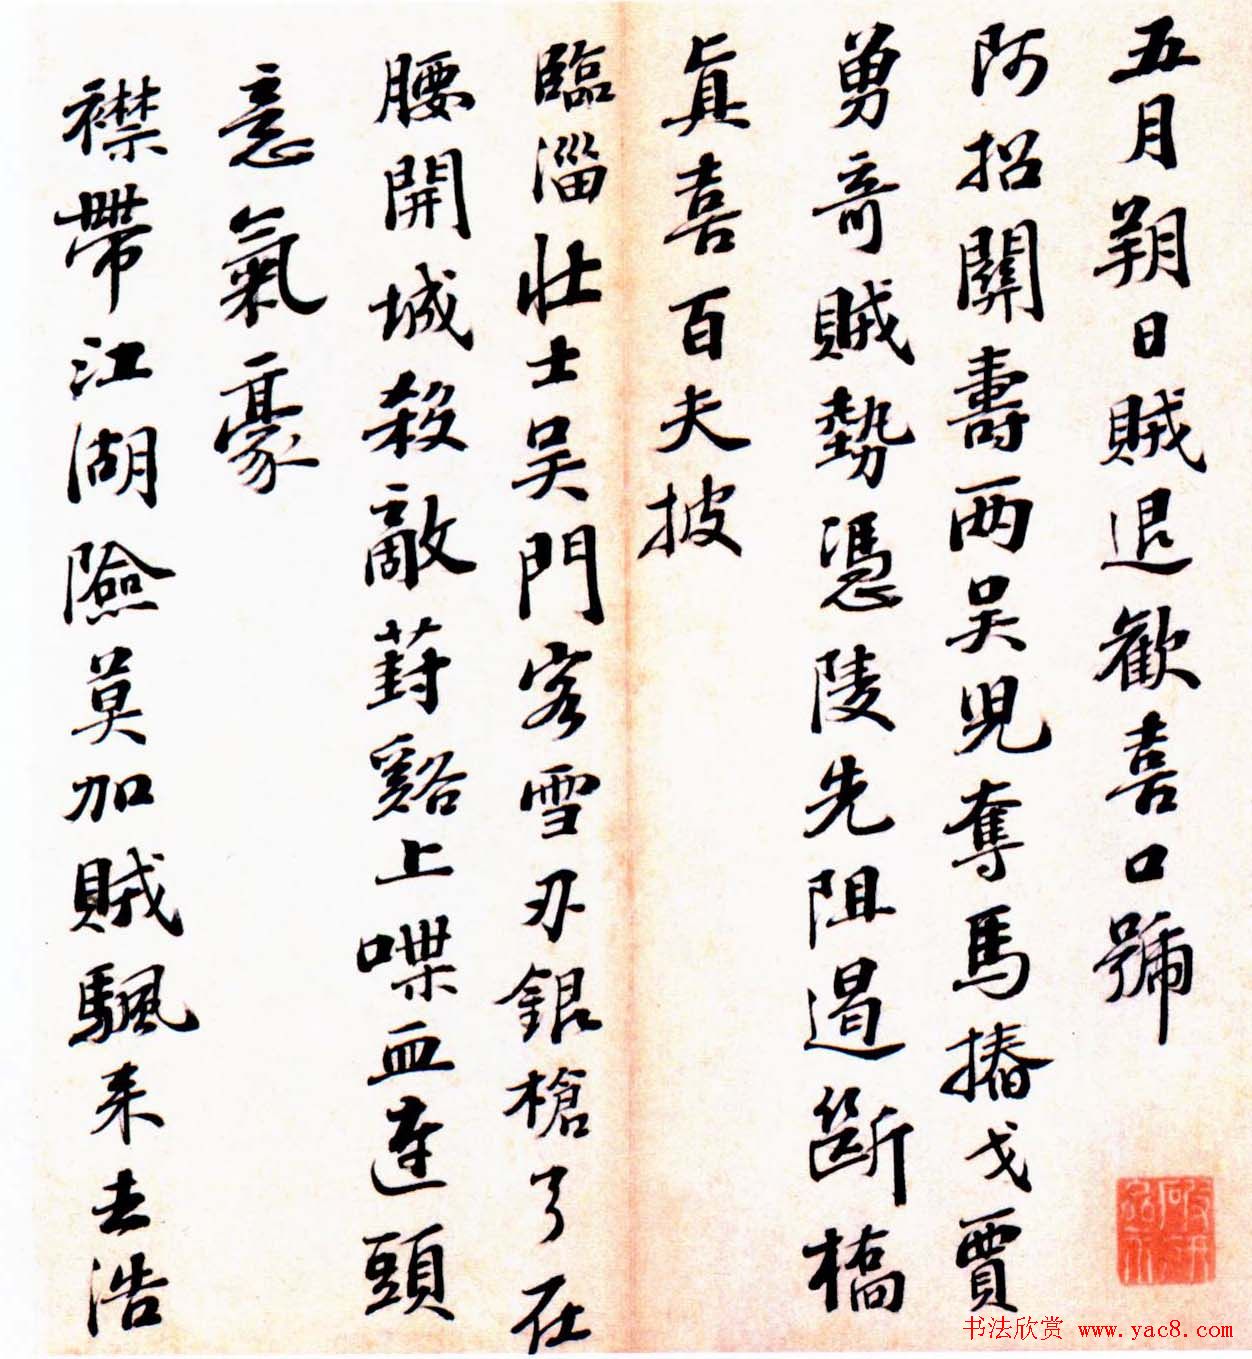 五月朔日賊退歡喜口號
阿招關壽两吳児奪馬摏戈賈
勇奇賊勢憑陵先阻遏斷橋
真喜百夫披
臨淄壯士吴門客雪刃銀槍了在
腰開城殺敵葑谿上喋血蓮頭
意氣豪
襟帶江湖險莫加賊颿来去浩
书法欣赏 www.yac8.com